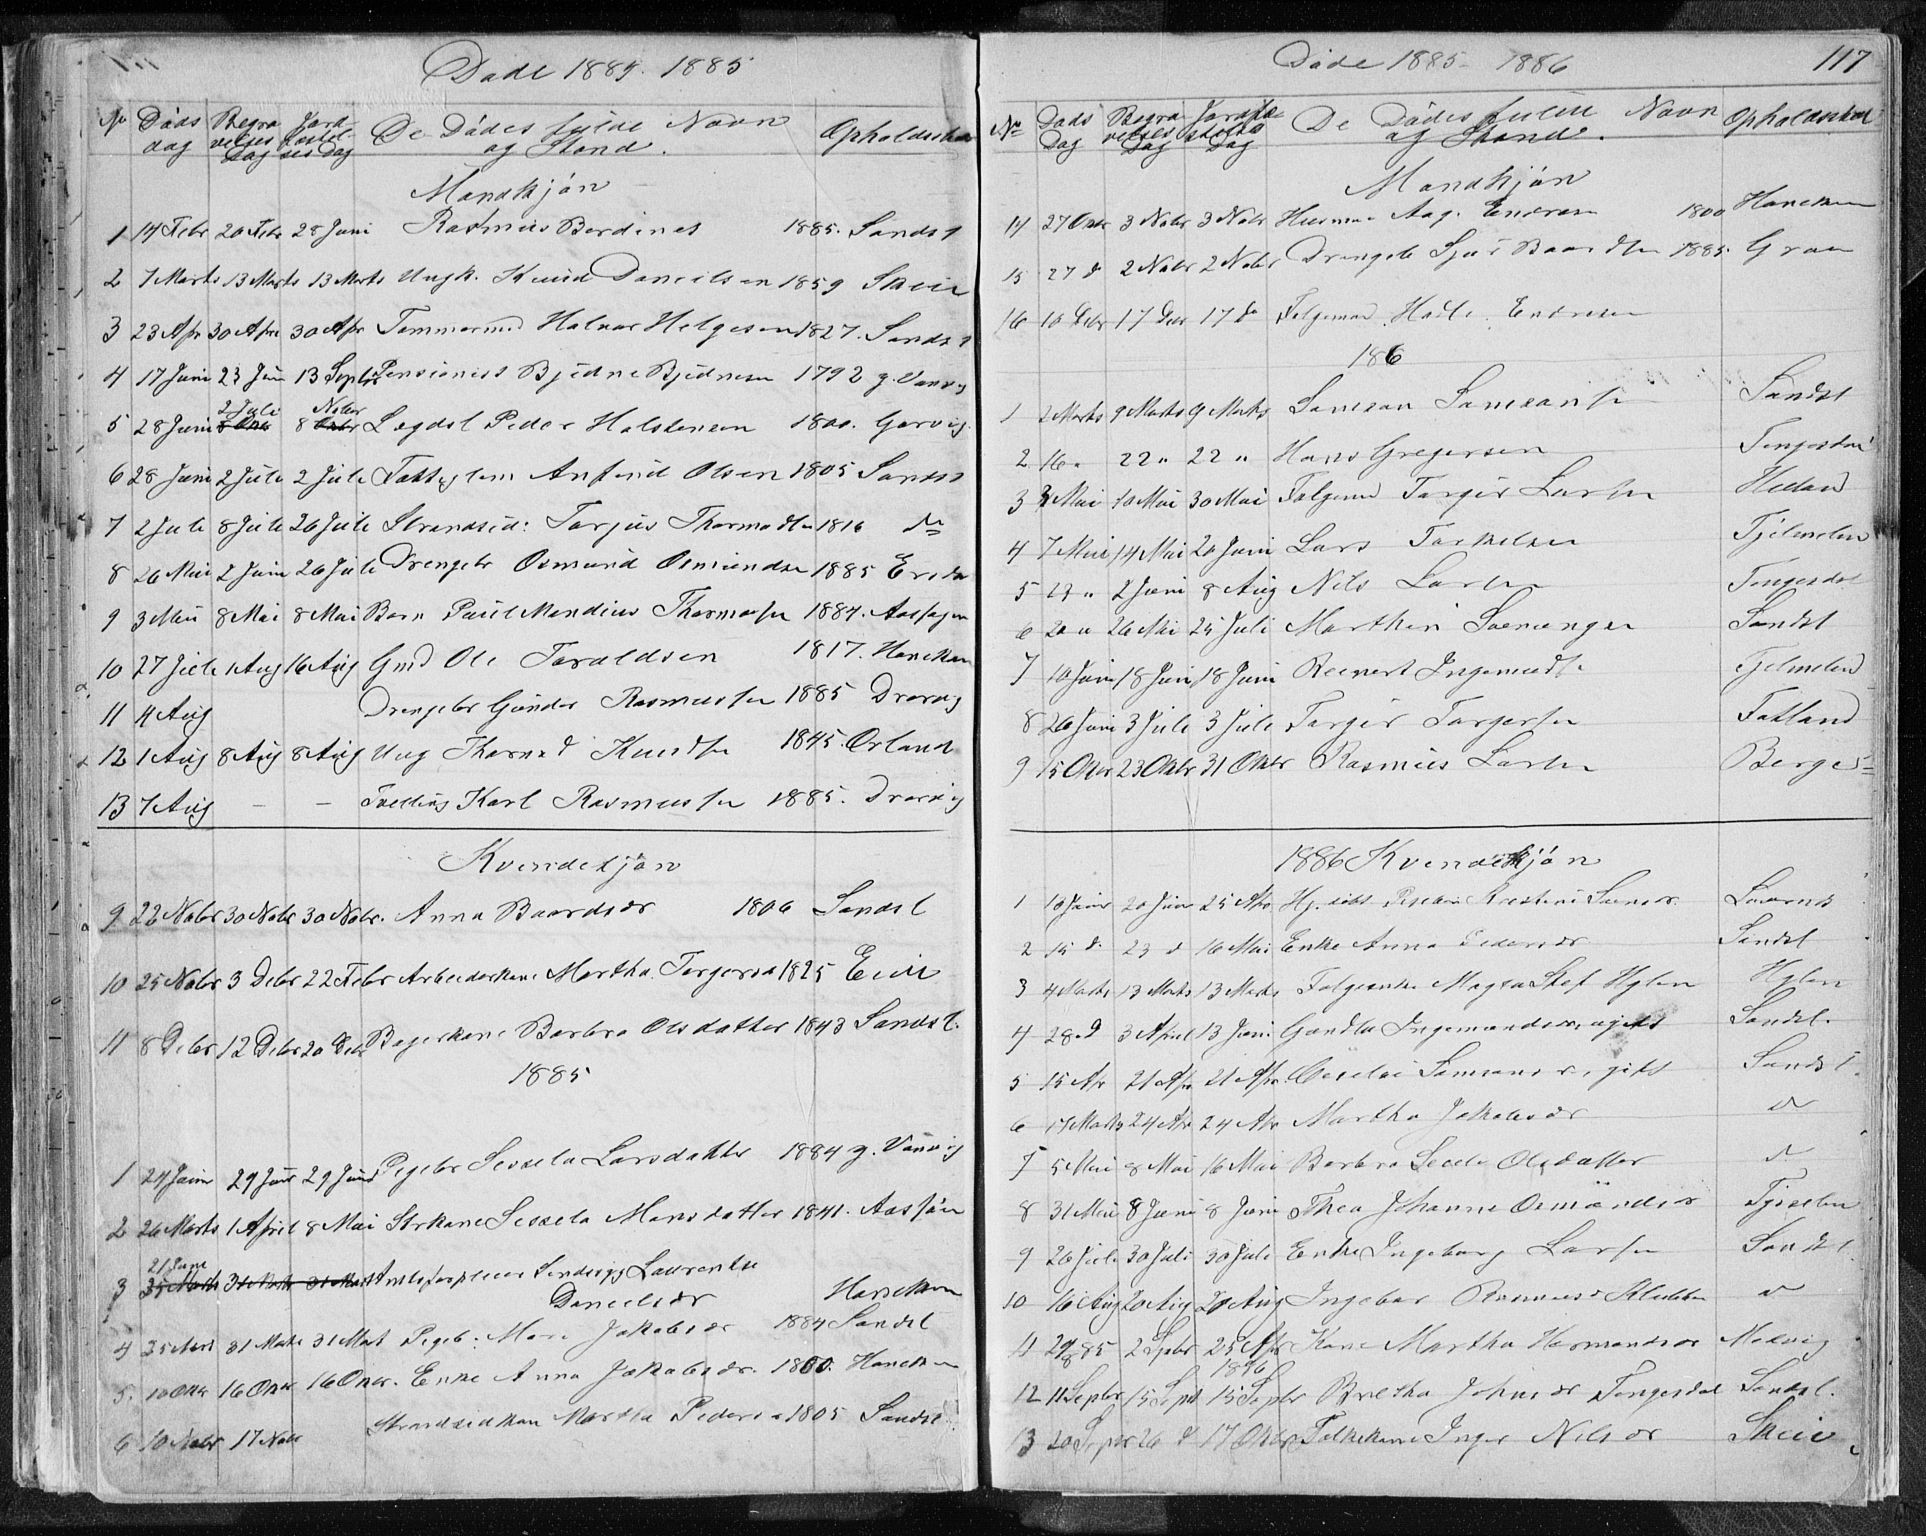 Døde 1884. 1885
No Døds dag Begravelses Dag Jordfæstelses Dag De Dødes fulde Navn og Stand. Opholdssted
Mandkjøn
1 14 Febr 20 Febr 28 Juni Rasmus Berdines 1885. Sandst
2 7 Marts 13 Marts 13 Marts Ungk. Knud Danielsen 1859 Skeie
3 23 Apr 30 Apr 30 Apr Tømmermd Halvor Helgesen 1827. Sandst
4 17 Juni 23 Juni 13 Septbr Pensionist Bjødne Bjødnsen 1792 g. Vanvig
5 28 Juni 2 Juli 8 Nobr Lægdsl Peder Halstensen 1800. Garvig
6 28 Juni 2 Juli 2 Juli Fattiglem Anfind Olsen 1805 Sandst
7 2 Juli 8 Juli 26 Juli Strandsid: Torjus Thormodsen 1816 do
8 26 Mai 2 Juni 26 Juli Drengebr Osmund Osmundsen 1885
9 3 Mai 8 Mai 8 Mai Barn Paul Mandius Thormodsen 1884.
10 27 Juli 1 Aug 16 Aug Gmd Ole Taraldsen 1817. Hanekam
11 4 Aug Drengebr Gunder Rasmussen 1885 Drarvig
12 1 Aug 8 Aug 8 Aug Ung Knudsen 1845. Ørland
13 7 Aug – – Tvilling Karl Rasmussen 1885. Drarvig
Kvindekjøn
9 22 Nobr 30 Nobr 30 Nobr. Anna Baardsdr 1806 Sandst
10 25 Nobr 3 Debr 22 Febr Arbeiderkone Martha Torgersd 1825 Eide
11 8 Debr 12 Debr 20 Debr Bagerkone Barbro Olsdatter 1843 Sandst.
1885
1 24 Juni 29 Juni 29 Juni Pigebr Sessela Larsdatter 1884 g. Vanvig
2 26 Marts 1 April 8 Mai Strkone Sessela Mansdatter 1841.
21 Juni
3 25 Marts 31 Marts 31 Marts Laurentse
Danielsdr Hanekam
4 25 Mars 31 Marts 31 Mart Pigeb: Mari Jakobsdr 1884 Sandst
5. 10 Okbr 16 Okbr 16 Okbr. Enke Anna Jakobsdr. 1800. Hanekam
6 10 Nobr 17 Nobr Strandsidkone Martha Pedersd 1805 Sandst
Døde 1885 - 1886 117
No Døds Dag Begravelses Dag Jordfæstelses Dag De Dødes fulde Navn og Stand. Opholdssted
Mandkjøn
14 27 Okbr 3 Nobr 3 Nobr Endresen 1800 Hanekam
15 27 d 2 Nobr 2 Nobr Drengeb Sjur Baardsen 1885. Grov
16 10 Debr 17 Debr 17 do Folgemd. Endresen
186
1 2 Marts 9 Marts 9 Marts Samson Samsonsen Sandst
2 16 " 22 " 22 " Hans Gregersen Tengesdal
3 3 Mai 10 Mai 30 Mai Folgemd Torger Larsen Heland
4 7 Mai 14 Mai 20 Juni Lars Torkelsen
5 27 " 2 Juni 8 Aug Nils Larsen Tengesdal
6 20 " 26 Mai 25 Juli Marthin Sandst
7 10 Juni 18 Juni 18 Juni Reinert Ingemundsen
8 26 Juni 3 Juli 3 Juli Torger Torgersen Fatland
9 15 Okbr 23 Okbr 31 Okbr Rasmus Larsen Berge
1886 Kvindekjøn
1 10 Janr 20 Jan 25 Apr
2 15 d. 23 d 16 Mai Enke Anna Pedersdr Sandst
3 4 Marts 13 Marts 13 Marts Folgeenke Magla Hylen Hylen
4 28 d 3 April 13 Juni Gundla Ingemundsdr. ugift Sandst.
5 15 Apr 21 Apr 21 Apr. Samsonsdr. gift Sandst.
6 17 Marts 24 Apr 24 Apr Martha Jakobsdr do
7 5 Mai 8 Mai 16 Mai Barbra Secele Olsdatter do
8 31 Mai 8 Juni 8 Juni Thea Johanne Osmundsdr
9 26 Juli 30 Juli 30 Juli Enke Ingeborg Larsen Sandst
10 16 Aug 20 Aug 20 Aug Ingebor Rasmusd do
11 29/8 85 2 Spbr 25 Apr 1886 Kone Martha Hermansdr
12 11 Septbr 15 Sept 15 Septbr Bretha Johnsdr Tengesdal Sandst.
13 20 Septbr 26 d 17 Okbr Inger Nilsdr Skeie